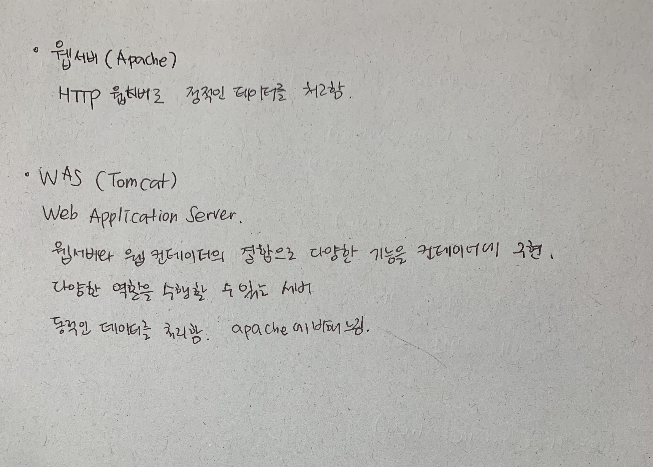 • 웹서버 (Apache)
HTTP 웹서버로 정적인 데이터를 처리함.
• WAS (Tomcat)
Web Application Server.
웹서버와 웹 컨테이터의 결합으로 다양한 기능을 컨테이너에 구현.
다양한 역할을 수행할 수 있는 서버
동적인 데이터를 처리함. apache에 비해 느림.